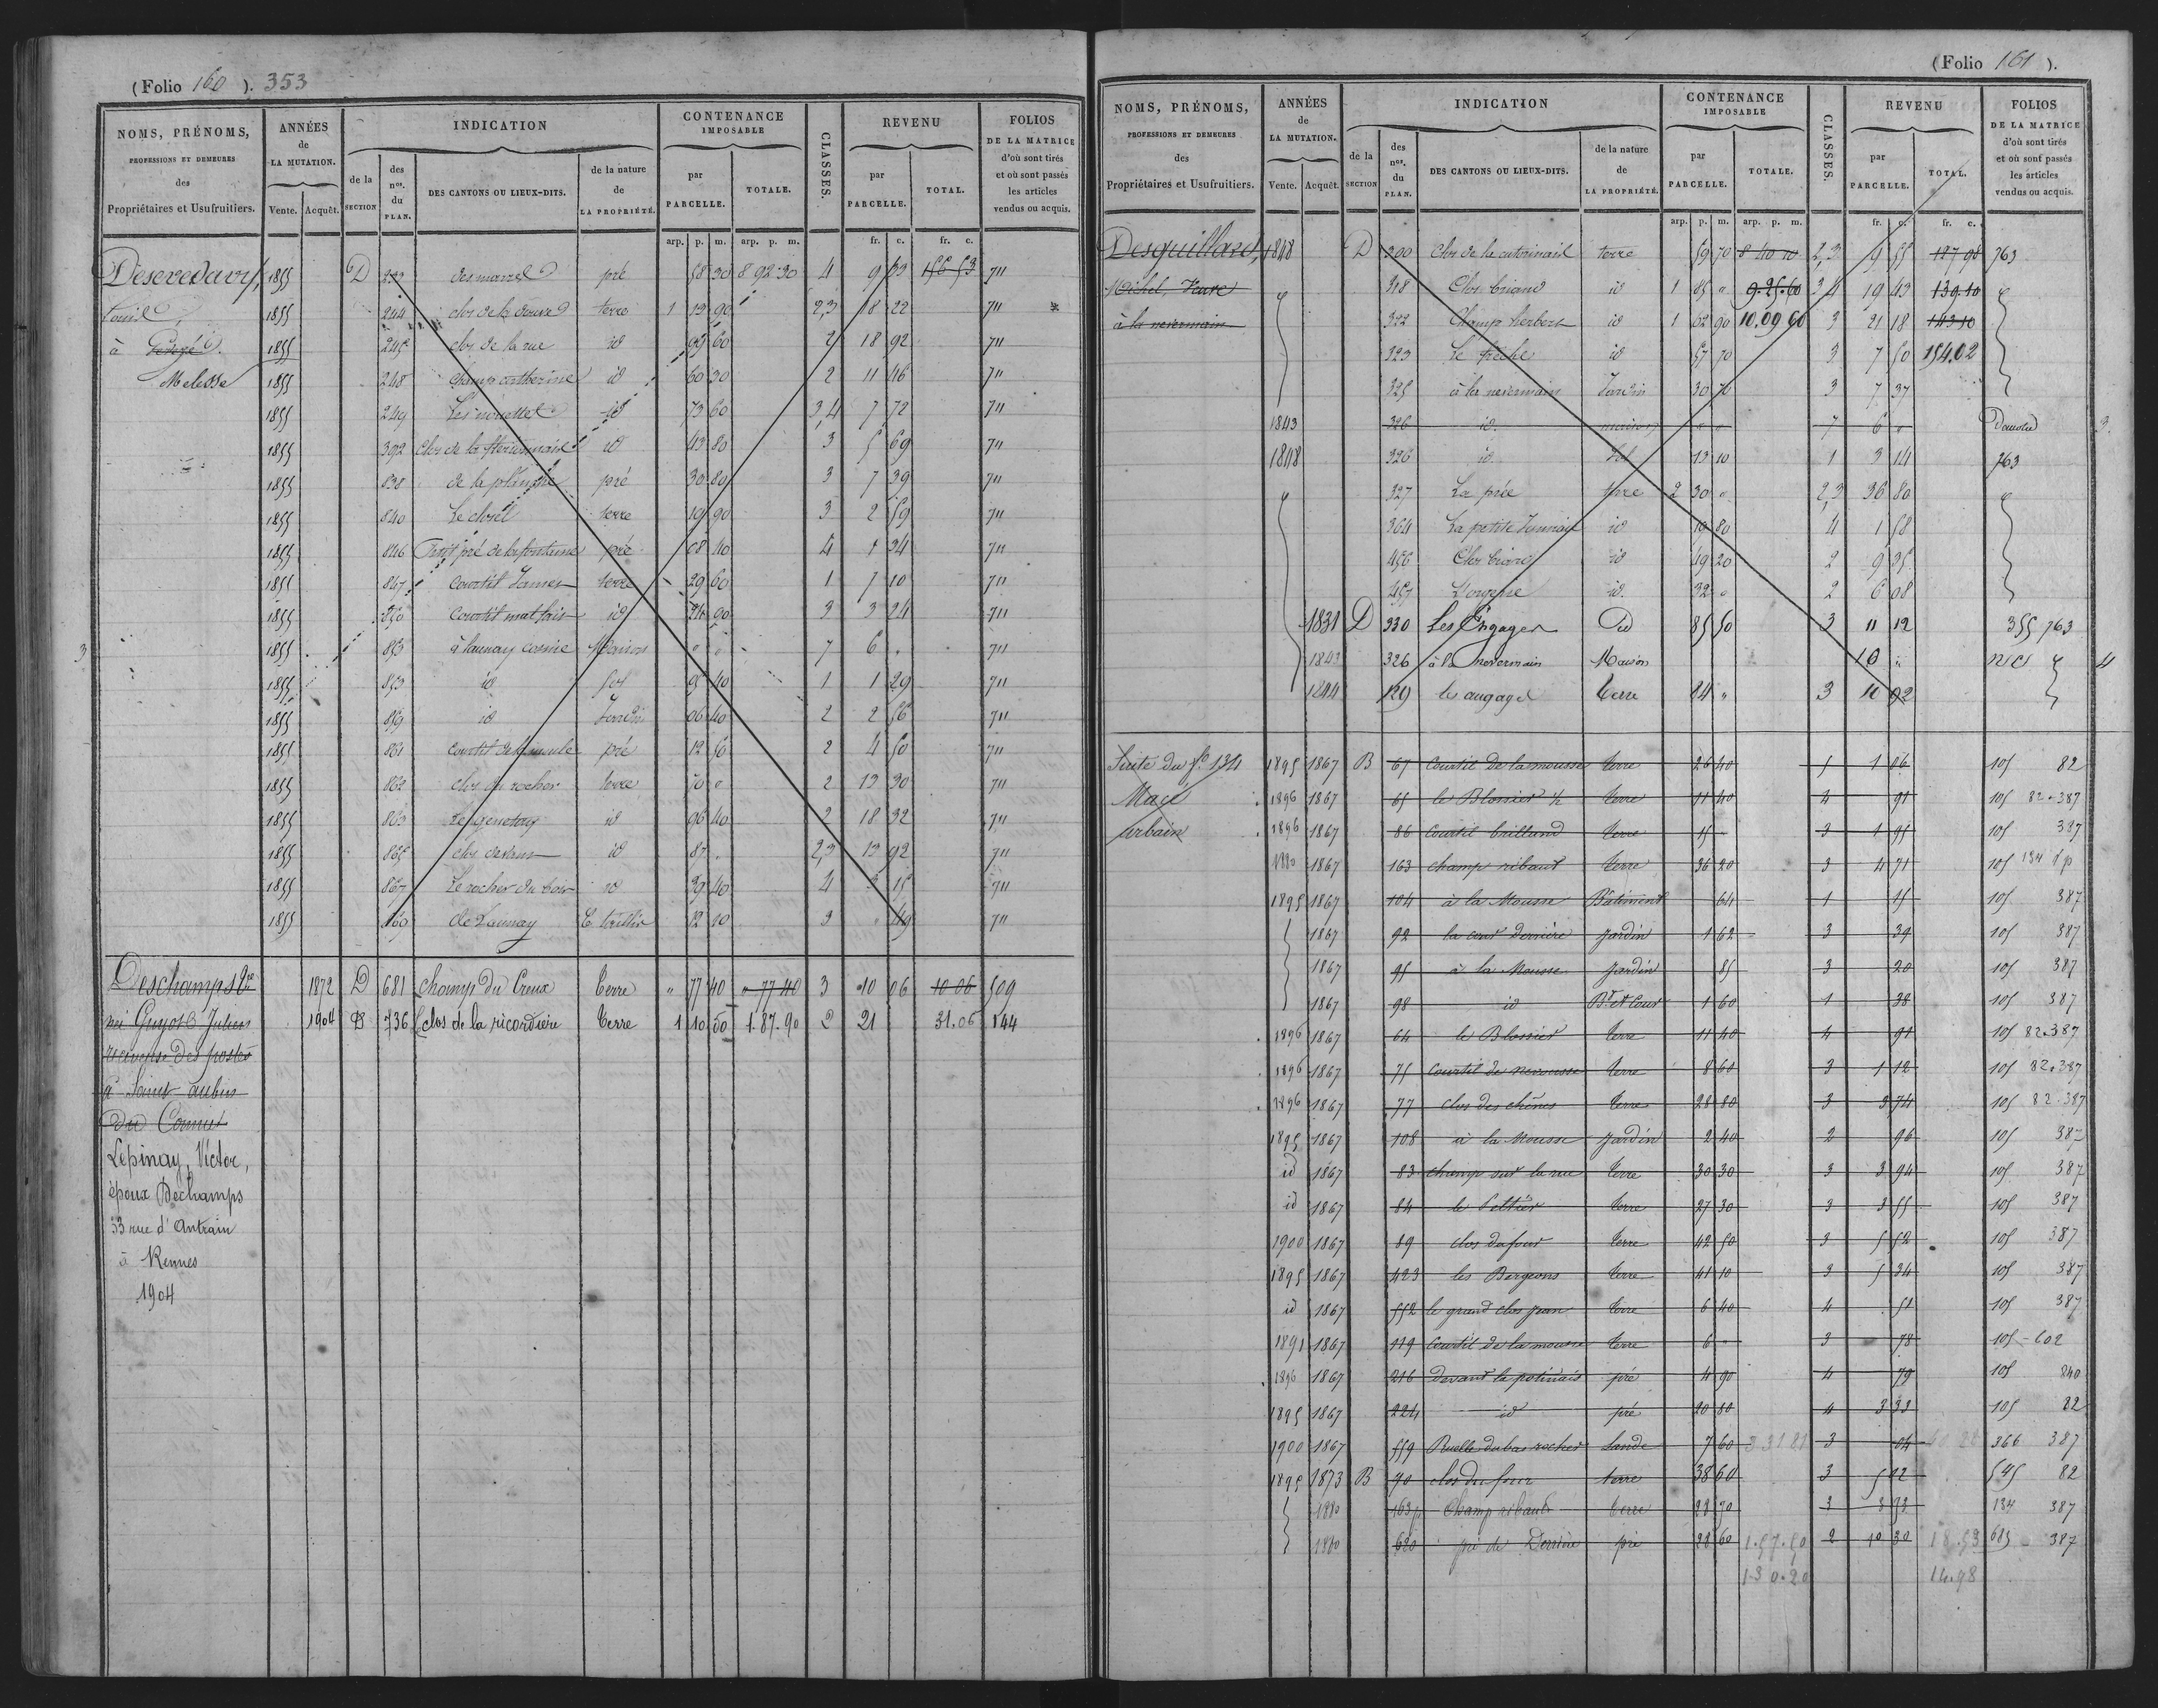 (Folio 160 ). 353
NOMS, PRÉNOMS, PROFESSIONS ET DEMEURES des Propriétaires et Usufruitiers.
ANNÉES de LA MUTATION. Vente. Acquêt.
INDICATION de la SECTION des nos. du PLAN. DES CANTONS OU LIEUX-DITS. de la nature de LA PROPRIÉTÉ.
CONTENANCE IMPOSABLE par PARCELLE. TOTALE.
CLASSES.
REVENU par PARCELLE. TOTAL.
FOLIOS DE LA MATRICE d'où sont tirés et où sont passés les articles vendus ou acquis.
arp. p. m. arp. p. m. fr. c. fr. c.
1855 D pré 58 30 8 92 30 4 9 33 156 53 711
1855 244 clos de la terre 1 19 90 2,3 18 22 711
à 1855 245 clos de la rue id 99 60 2 18 92 711
Melesse 1855 248 Champ catherine id 60 30 2 11 46 711
1855 249 id 73 60 3 4 7 72 711
1855 392 Clos de la id 43 80 3 5 69 711
1855 838 de la planche pré 30 80 3 7 39 711
1855 840 Le closel terre 19 90 3 2 59 711
1855 846 Petit pré de la fontaine pré 08 40 4 1 34 711
1855 847 Courtil James terre 29 60 1 7 10 711
1855 850 Courtil mal fait id 24 90 3 3 24 711
1855 853 à launay Maison " " 7 6 " 711
1855 853 id Sol 05 40 1 1 29 711
1855 859 id Jardin 06 40 2 2 56 711
1855 861 pré 12 50 2 4 50 711
1855 862 clos du rocher terre 70 " 2 13 30 711
1855 863 id 96 40 2 18 32 711
1855 865 clos id 87 " 2,3 13 92 711
1855 867 Le rocher du bois id 39 40 4 3 15 711
1855 169 de Launay 12 20 3 " 49 711
Deschamps 1872 D 681 Champ du Creux terre " 77 40 " 77 40 3 10 06 10 06 509
née Guyot Julien 1904 B 736 clos de la ricordière terre 1 10 50 1.87.90 2 21 31.06 144
des postes
à Saint aubin
du Cormier
Lépinay, Victor,
époux Dechamps
33 rue d'Antrain
à Rennes
1904
(Folio 161 ).
NOMS, PRÉNOMS, PROFESSIONS ET DEMEURES des Propriétaires et Usufruitiers.
ANNÉES de LA MUTATION. Vente. Acquêt.
INDICATION de la SECTION des nos. du PLAN. DES CANTONS OU LIEUX-DITS. de la nature de LA PROPRIÉTÉ.
CONTENANCE IMPOSABLE par PARCELLE. TOTALE.
CLASSES.
REVENU par PARCELLE. TOTAL.
FOLIOS DE LA MATRICE d'où sont tirés et où sont passés les articles vendus ou acquis.
arp. p. m. arp. p. m. fr. c. fr. c.
Desguillard, 1848 D 300 Clos de la terre 59 70 8 40 10 2,3 9 55 127 98 763
Michel, 318 Clos briand id 1 85 " 9.25.60 3 4 19 43 139.10
à la nevermain 322 Champ herbert id 1 62 90 10,09 60 3 21 18 143 10
323 id 57 70 3 7 50 154.02
325 à la nevermain Jardin 30 70 3 7 37
1843 326 id. maison " " 7 6 " Démolie 3
1848 326 id Sol 13 10 1 3 14 763
327 La prée 2 30 " 2,3 36 80
364 La petite id 19 80 4 1 58
456 Clos id 49 20 2 9 35
457 id. 32 " 2 6 08
1831 D 330 Les Engages 85 50 3 11 12 355 763
1843 326 à la nevermain Maison 10 " 4
1844 129 les angages terre 84 " 3 10 92
Suite du fo 134 1895 1867 B 67 Courtil de la mousse terre 26 40 5 1 06 105 82
Macé 1896 1867 65 le Blossier 1/2 terre 11 40 4 91 105 82-387
urbain 1896 1867 86 Courtil brilland terre 15 " 3 1 95 105 387
1880 1867 163 champ ribault terre 36 20 3 4 71 105 134 dp
1895 1867 104 à la Mousse Bâtiment 64 1 15 105 387
1867 92 la cour Derrière jardin 1 62 3 39 105 387
1867 95 à la Mousse jardin 85 3 20 105 387
1867 98 id Bt et Cour 1 60 1 38 105 387
1896 1867 64 le Blossier terre 11 40 4 91 105 82.387
1896 1867 75 Courtil de terre 8 60 3 1 12 105 82.387
1896 1867 77 clos des chênes terre 28 80 3 3 74 105 82.387
1895 1867 108 à la Mousse jardin 2 40 2 96 105 387
id 1867 83 champ sur la rue terre 30 30 3 3 94 105 387
id 1867 84 le terre 27 30 3 3 55 105 387
1900 1867 89 clos dufour terre 42 50 3 5 52 105 387
1895 1867 423 les Bergeons terre 41 10 3 5 34 105 387
id 1867 552 le grand clos jean terre 6 40 4 51 105 387
1891 1867 119 Courtil de la mousse terre 6 " 3 78 105 - 602
1896 1867 216 Devant la potinais pré 4 90 4 79 105 840
1895 1867 224 id pré 20 80 4 3 33 105 82
1900 1867 559 Ruelle du bas rocher Lande 7 60 3 31 81 3 04 366 387
1895 1873 B 90 clos du four terre 38 60 3 5 02 545 82
1880 163p Champ ribault terre 28 70 3 3 73 134 387
1880 620 pré de Derrière pré 28 60 1.57.50 2 10 30 18.53 685 387
1 30.20 14.98